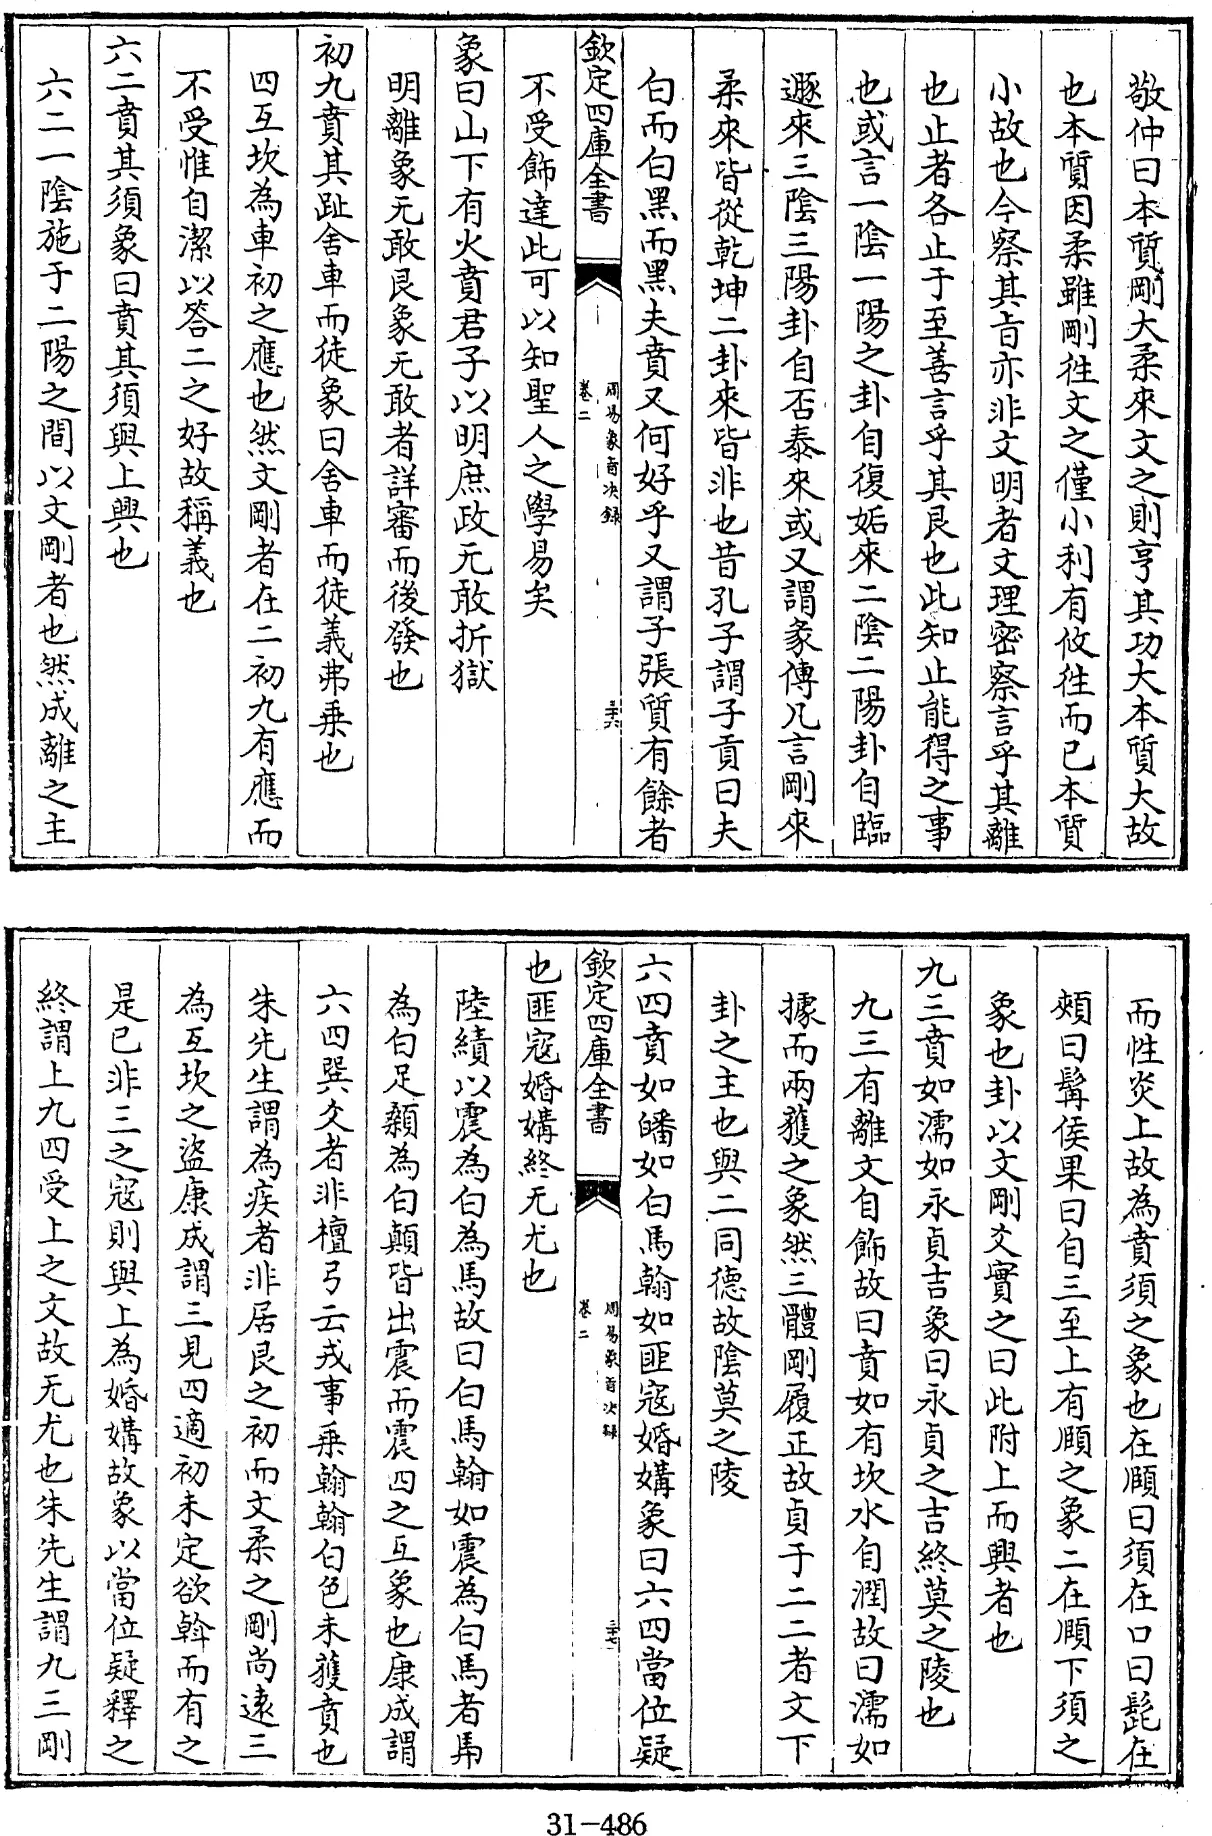 敬仲曰本質剛大柔來文之則亨其功大本質大故
也本質因柔雖剛徃文之僅小利有攸徃而已本質
小故也今察其㫖亦非文明者文理密察言乎其離
也止者各止于至善言乎其艮也此知止能得之事
也或言一陰一陽之卦自復姤來二陰二陽卦自臨
遯來三陰三陽卦自否泰來或又謂彖傳凡言剛來
柔來皆從乾坤二卦來皆非也昔孔子謂子貢曰夫
白而白黑而黑夫賁又何好乎又謂子張質有餘者
欽定四庫全書
周易象旨決録
卷二
三十六
不受飾達此可以知聖人之學易矣
象曰山下有火賁君子以明庶政无敢折獄
明離象无敢艮象无敢者詳審而後發也
初九賁其趾舍車而徒象曰舍車而徒義弗乗也
四互坎為車初之應也然文剛者在二初九有應而
不受惟自潔以答二之好故稱義也
六二賁其須象曰賁其須與上興也
六二一陰施于二陽之間以文剛者也然成離之主
而性炎上故為賁須之象也在頤曰須在口曰髭在
頰曰髯侯果曰自三至上有頤之象二在頤下須之
象也卦以文剛文實之曰此附上而興者也
九三賁如濡如永貞吉象曰永貞之吉終莫之陵也
九三有離文自飾故曰賁如有坎水自潤故曰濡如
據而兩獲之象然三體剛履正故貞于二二者文下
卦之主也與二同德故陰莫之陵
六四賁如皤如白馬翰如匪寇婚媾象曰六四當位疑
欽定四庫全書
周易象旨決録
卷二
三十七
也匪寇婚媾終无尤也
陸績以震為白為馬故曰白馬翰如震為白馬者馬
為白足顙為白顛皆出震而震四之互象也康成謂
六四巽爻者非檀弓云戎事乗翰翰白色未獲賁也
朱先生謂為疾者非居艮之初而文柔之剛尚逺三
為互坎之盜康成謂三見四適初未定欲斡而有之
是已非三之寇則與上為婚媾故象以當位疑釋之
終謂上九四受上之文故无尤也朱先生謂九三剛
31-486